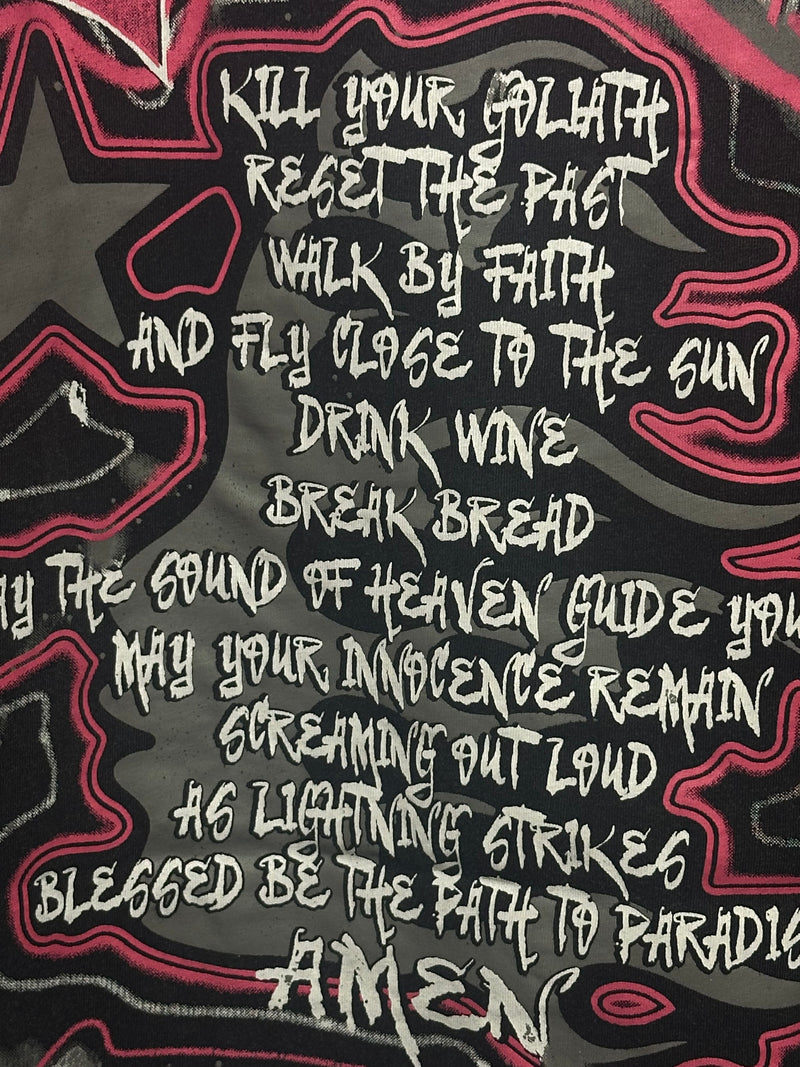 KILL YOUR GOLIATH
RESET THE PAST
WALK BY FAITH
AND FLY CLOSE TO THE SUN
DRINK WINE
BREAK BREAD
AY THE SOUND OF HEAVEN GUIDE YOU
MAY YOUR INNOCENCE REMAIN
SCREAMING OUT LOUD
AS LIGHTNING STRIKES
BLESSED BE THE PATH TO PARADIS
AMEN